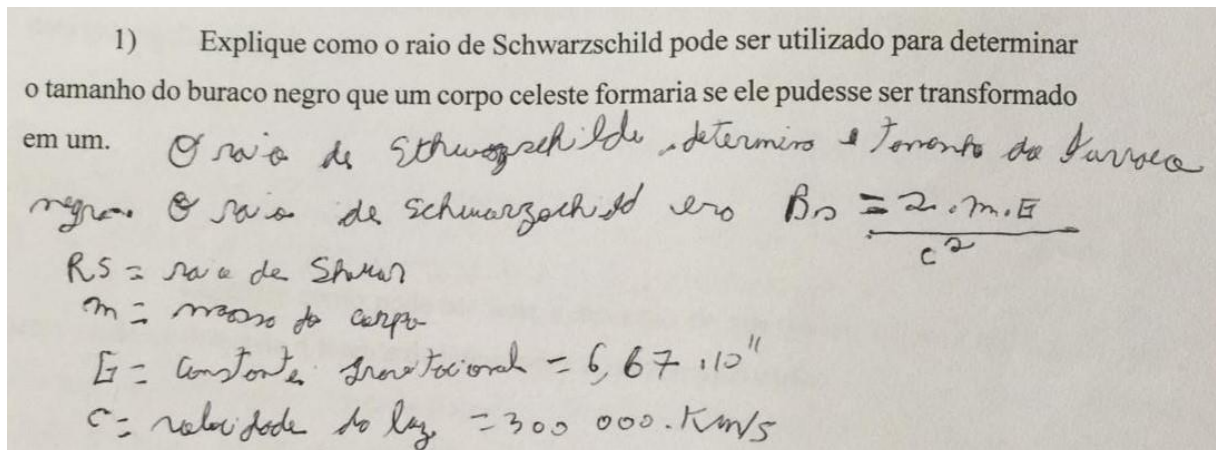 1) Explique como o raio de Schwarzschild pode ser utilizado para determinar
o tamanho do buraco negro que um corpo celeste formaria se ele pudesse ser transformado
em um. O raio de determina o tamanho do
negro. O raio de Schwarzschild era Rs = 2.m.G
c²
RS = raio de
m = massa do corpo
G = Constante gravitacional = 6,67.10¹¹
c = velocidade da luz = 300 000.Km/s